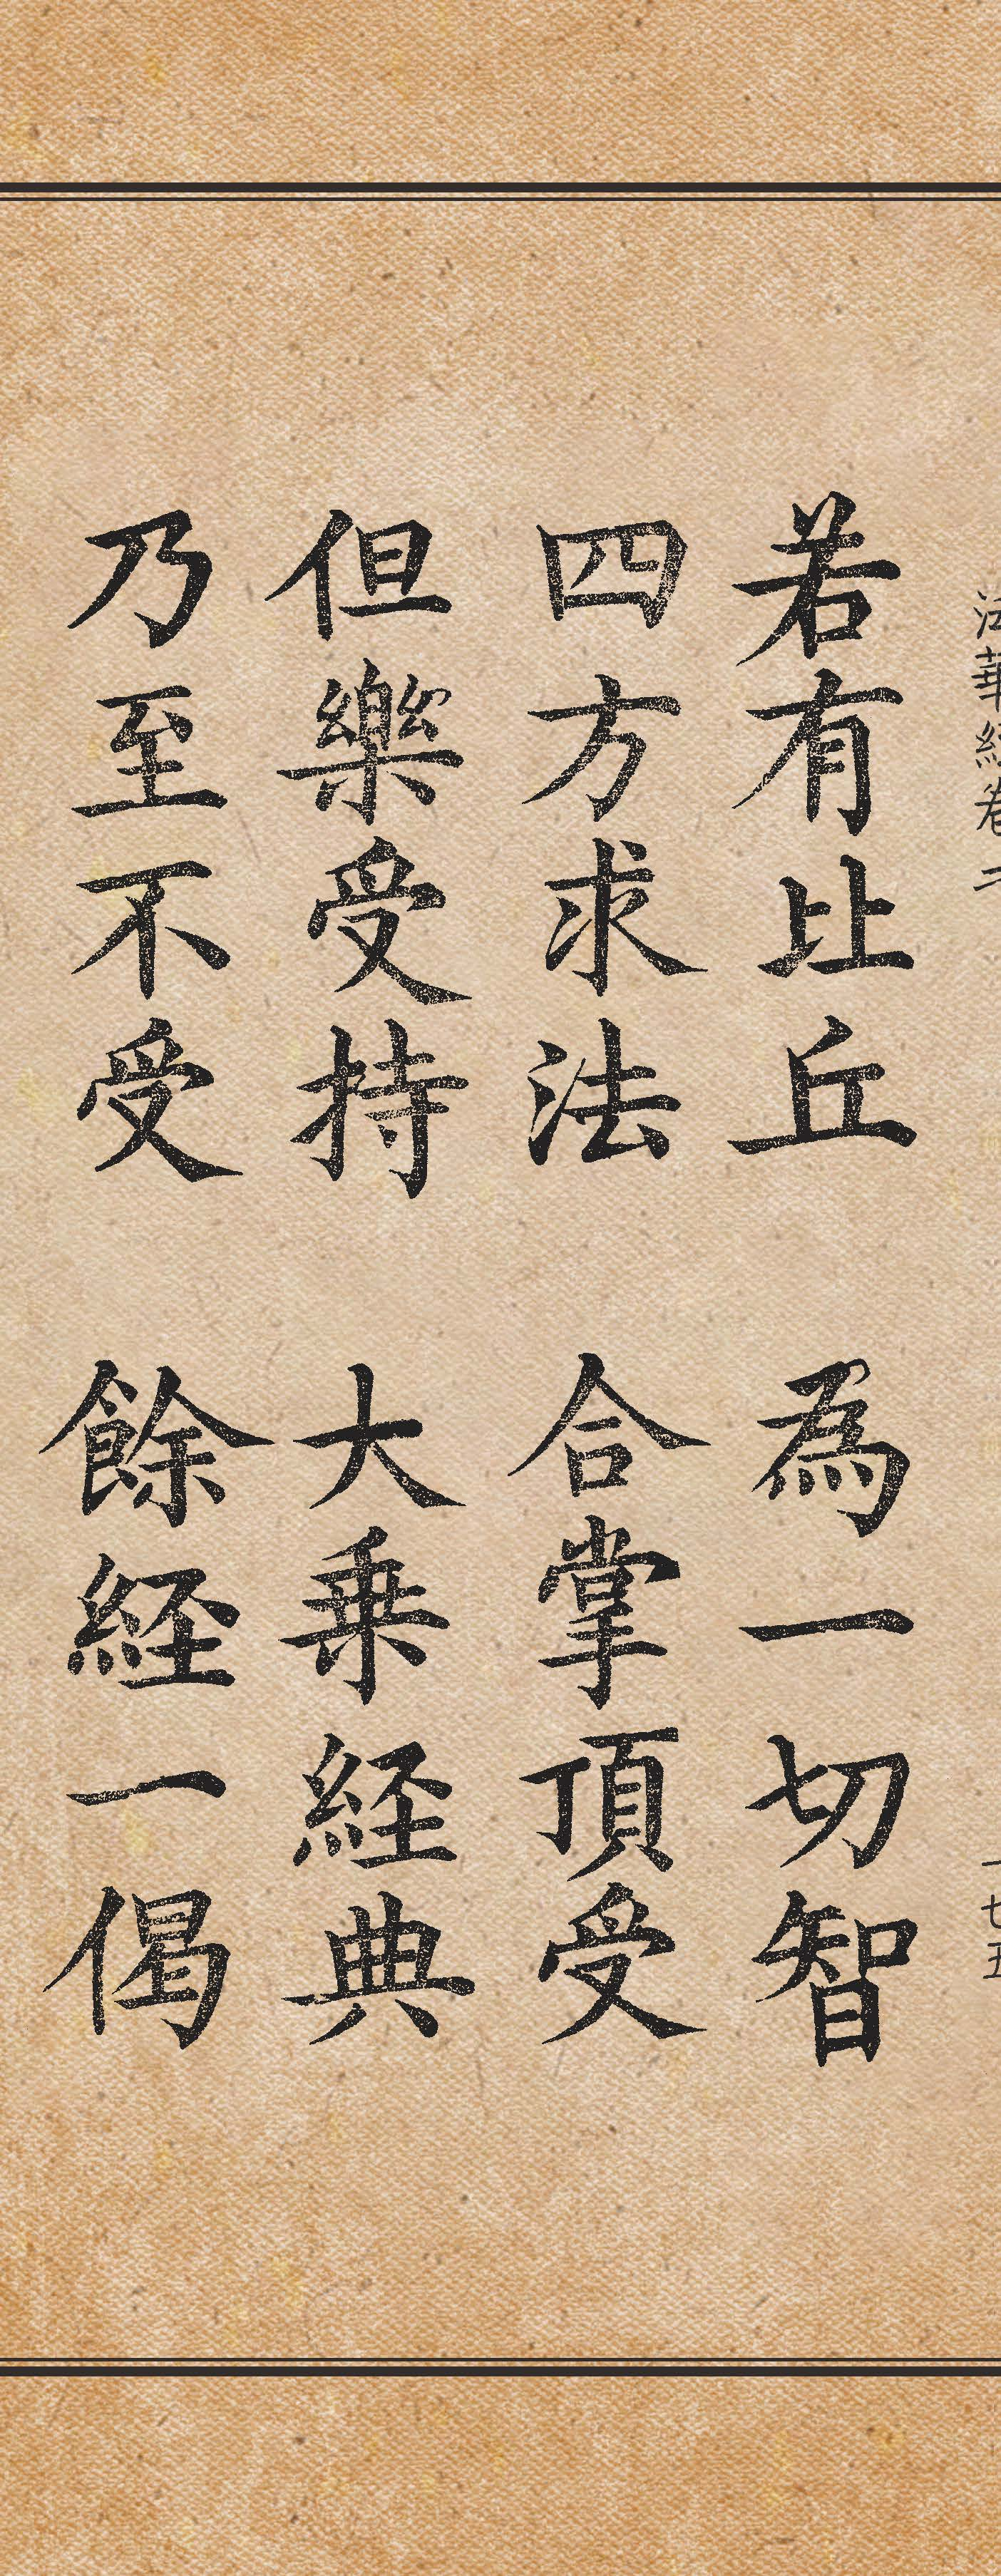 法華経巻二
一七五
若有比丘 為一切智
四方求法 合掌頂受
但樂受持 大乗経典
乃至不受 餘経一偈